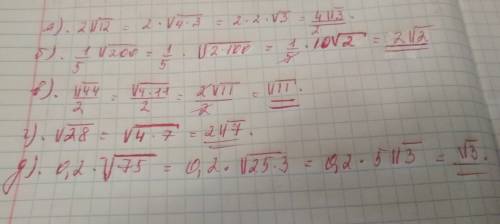 а). 2√12 = 2 · √4·3 = 2·2·√3 = 4√3
б). 1/5 √200 = 1/5 · √2·100 = 1/5 · 10√2 = 2√2
в). √44/2 = √4·11/2 = 2√11/2 = √11.
г). √28 = √4·7 = 2√7.
д). 0,2·√75 = 0,2·√25·3 = 0,2·5√3 = √3.